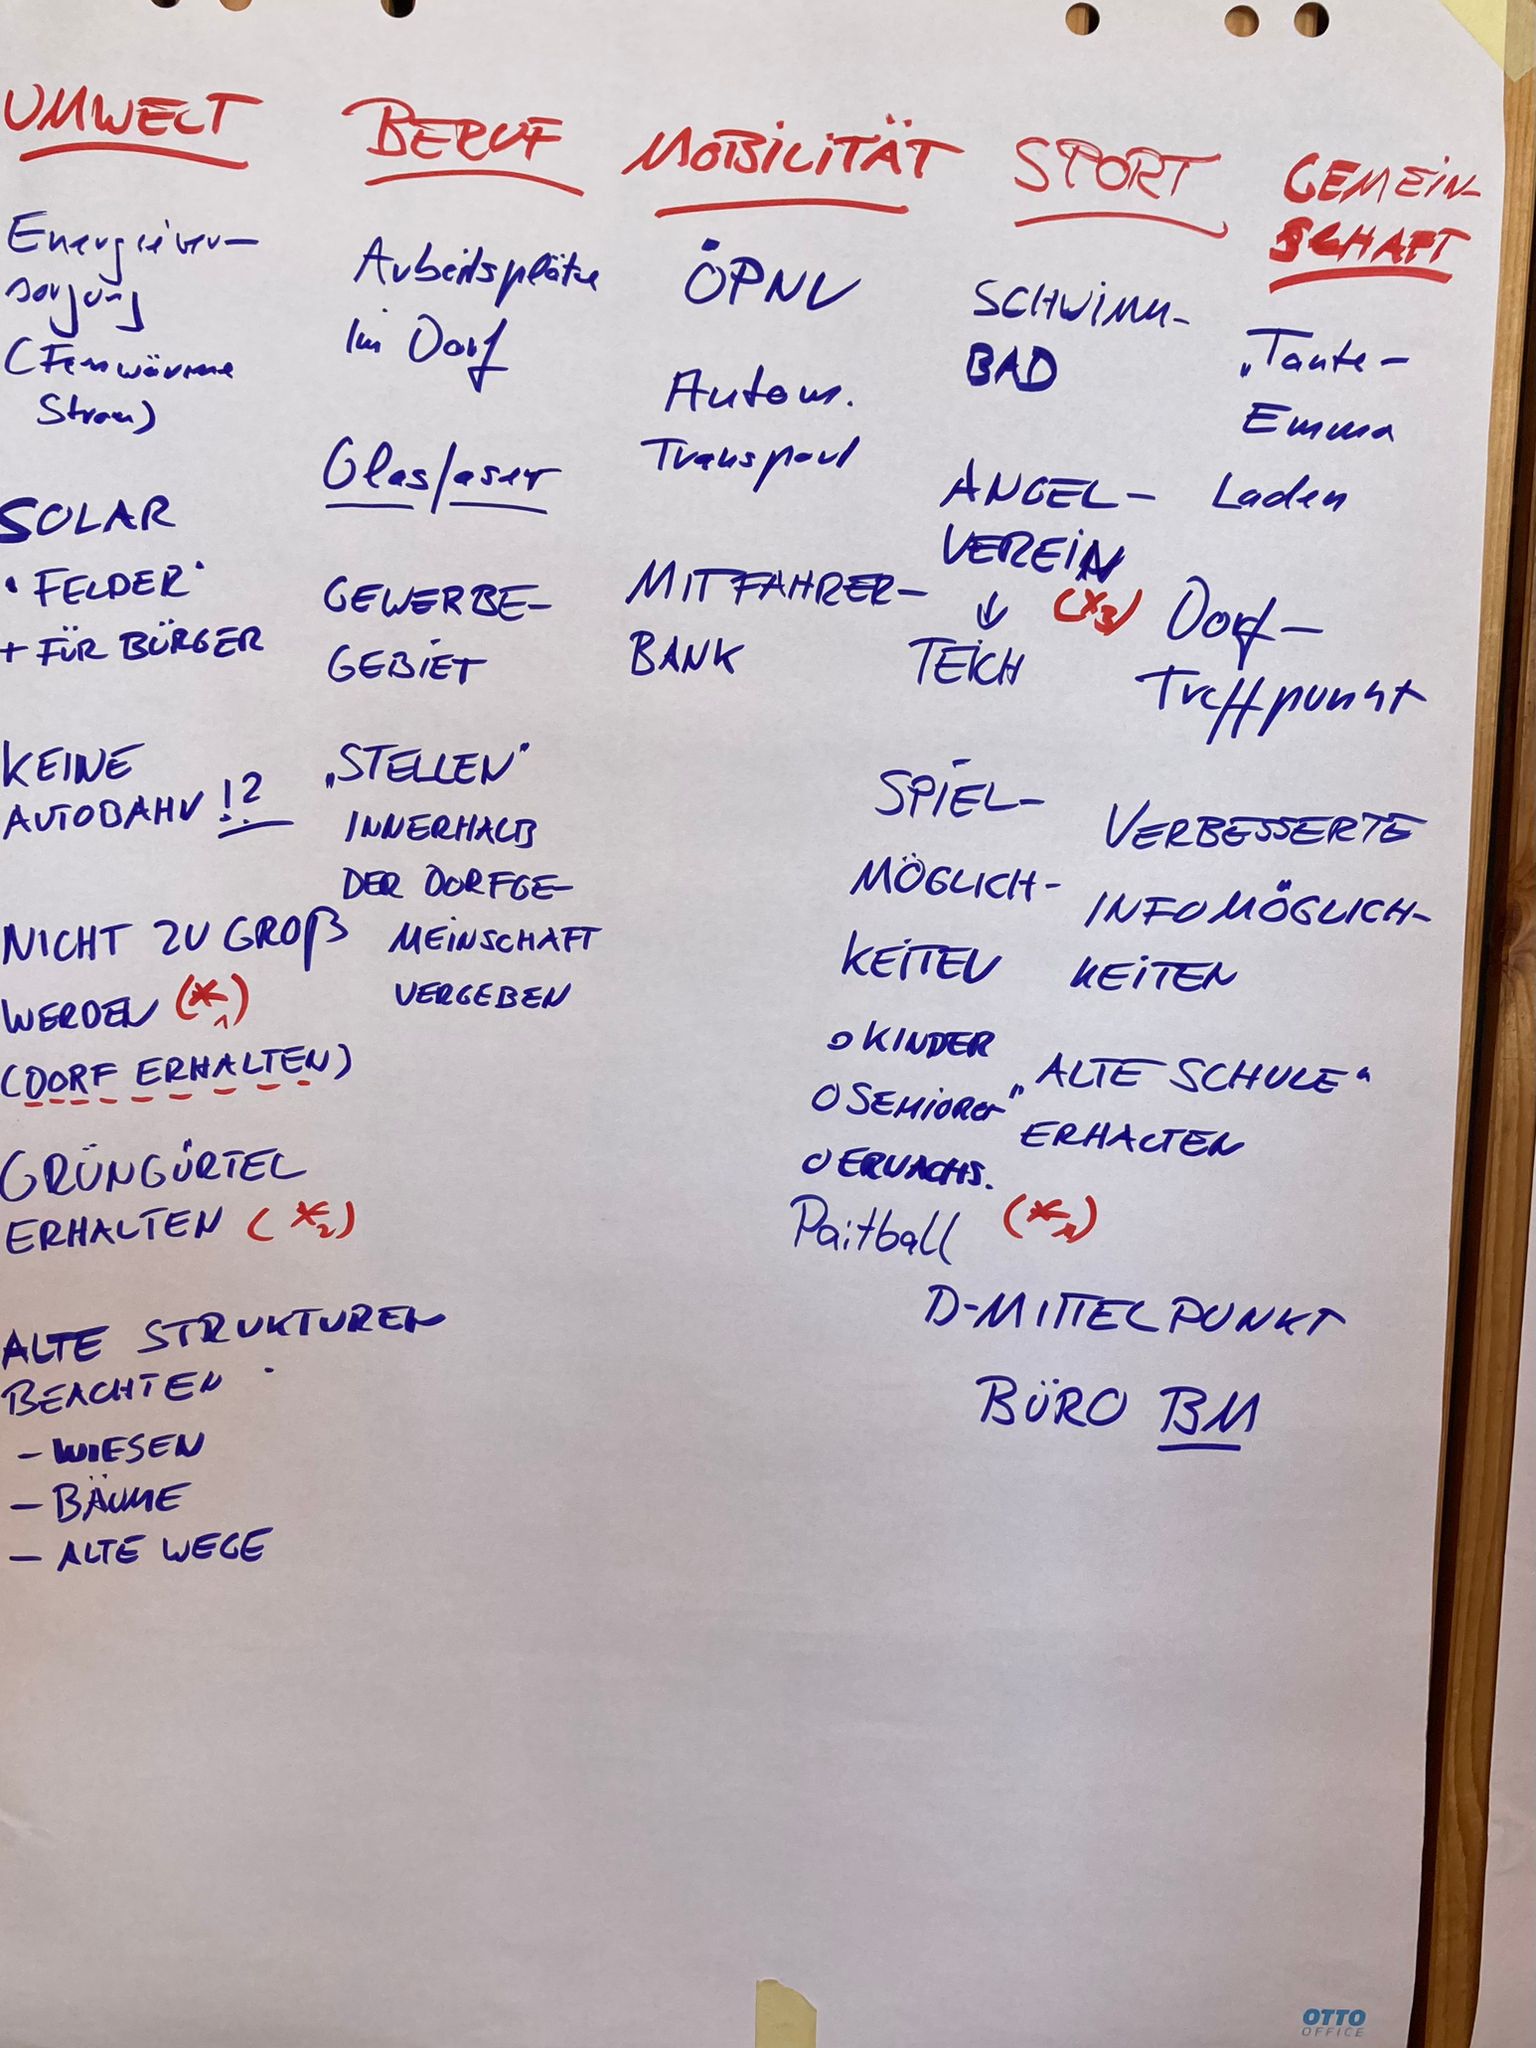 UMWELT
Energiever-
sorgung
(Fernwärme
Strom)
SOLAR
"FELDER"
+ FÜR BÜRGER
KEINE
AUTOBAHN !?
NICHT ZU GROß
WERDEN (*1)
(DORF ERHALTEN)
GRÜNGÜRTEL
ERHALTEN (*2)
ALTE STRUKTUREN
BEACHTEN
- WIESEN
- BÄUME
- ALTE WEGE
BERUF
Arbeitsplätze
im Dorf
Glasfaser
GEWERBE-
GEBIET
„STELLEN"
INNERHALB
DER DORFGE-
MEINSCHAFT
VERGEBEN
MOBILITÄT
ÖPNV
Autom.
Transport
MITFAHRER-
BANK
SPORT
SCHWIMM-
BAD
ANGEL-
VEREIN
↓ (*3)
TEICH
SPIEL-
MÖGLICH-
KEITEN
o KINDER
o SENIOREN
o ERWACHS.
Paitball
GEMEIN-
SCHAFT
„Tante-
Emma
Laden
Dorf-
Treffpunkt
VERBESSERTE
INFOMÖGLICH-
KEITEN
"ALTE SCHULE"
ERHALTEN
(*1)
D-MITTELPUNKT
BÜRO BM
OTTO
OFFICE